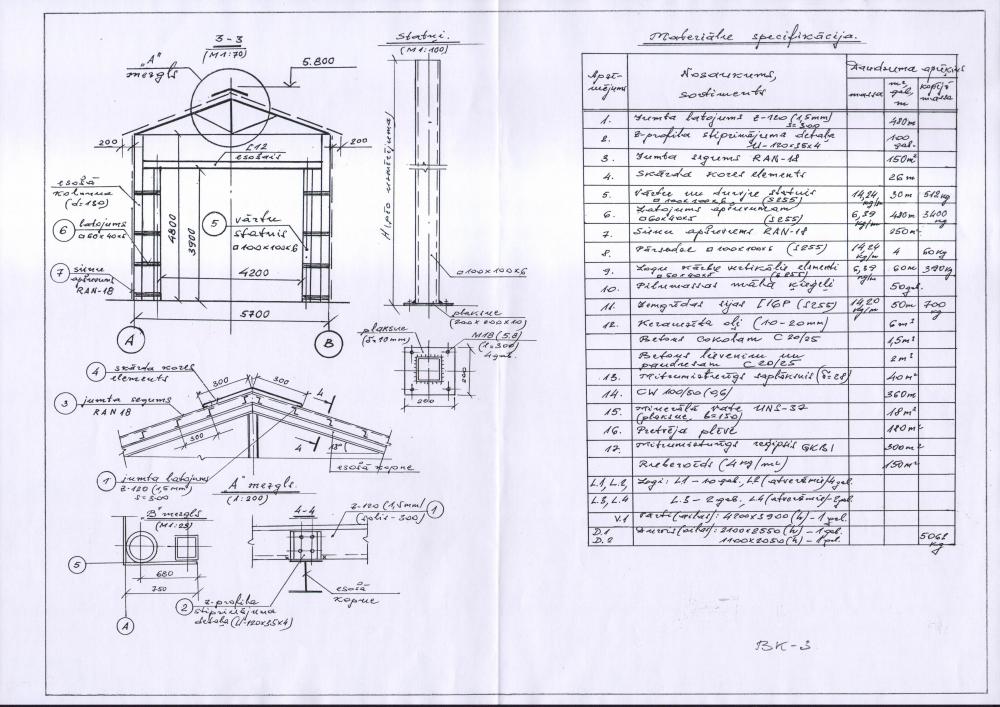 3-3
(M1:70)
"A"
mezgls
5.800
200
200
[12
esošais
esošā
kolonna
(d=180)
6
latojums
□60x40x5
4800
3900
5
vārtu
statnis
□100x100x6
7
sienu
apšuvums
RAN-18
4200
5700
A
B
Statni.
(M1:100)
□100x100x6
plāksne
(200x200x10)
plāksne
(δ=10mm)
M18 (5.8)
(l=300)
4 gab.
200
200
4
skārda kores
elements
300
300
4
3
jumta segums
RAN 18
300
4
15°
esošā kopne
1
jumta latojums
Z-120 (1,5mm)
s=300
"A" mezgls.
(1:200)
"B" mezgls
(M1:25)
5
680
750
A
4-4
Z-120 (1,5mm)
(solis-300)
1
esošā
kopne
2
z-profila
stiprinājuma
detaļa (U-120x35x4)
Materiālu specifikācija.
Apzī-
mējums
Nosaukums,
sortiments
Daudzuma apjoms
massa
m²
gab,
m
kopējā
massa
1. Jumta latojums Z-120 (1,5mm) s=300 480m
2. Z-profila stiprinājuma detaļa U-120x35x4 100 gab.
3. Jumta segums RAN-18 150m²
4. Skārda kores elements 26m
5. Vārtu un durvju statnis □100x100x6 (S255) 14,24 kg/m 30m 512kg
6. Latojums apšuvumam □60x40x5 (S255) 6,39 kg/m 480m 3400 kg
7. Sienu apšuvums RAN-18 250m²
8. Pārsedze □100x100x5 (S255) 14,24 kg/m 4 60kg
9. Logu kārbu vertikālie elementi □60x40x5 (S255) 6,39 kg/m 60m 390kg
10. māla ķieģeļi 50gab.
11. Zemgrīdas sijas [16P (S255) 14,20 kg/m 50m 700 kg
12. Keramzīta oļi (10-20mm) 6m³
Betons cokolam C 20/25 1,5m³
Betons lievenim un pandusam C 20/25 2m³
13. Mitrumizturīgs saplāksnis (δ=28) 40m²
14. CW 100/50 (0,6) 360m
15. Minerālā vate UNS-37 (plāksne, b=150) 18m³
16. Pretvēja plēve 180m²
17. Mitrumizturīgs reģipsis GKBI 300m²
Ruberoīds (4kg/m²) 150m²
L.1, L.2, Logi: L1-10 gab, L2 (atverams)-4 gab.
L.3, L.4 L.3-2 gab. L4 (atverams)-2 gab.
V.1 Vārti (ailas): 4200x3900 (h)-1 gab.
D.1 Durvis (ailas): 2100x2550 (h)-1 gab.
D.2 1100x2050 (h)-1 gab. 5062 kg
BK-3